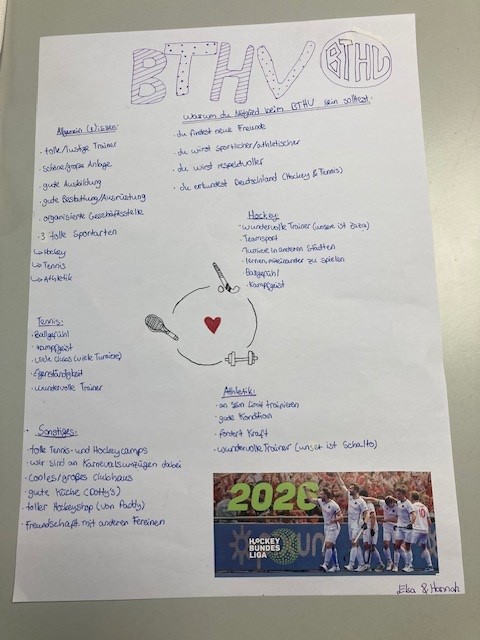 BTHV
BTHV
Warum du Mitglied beim BTHV sein solltest:
· du findest neue Freunde
· du wirst sportlicher/athletischer
· du wirst respektvoller
· du erkundest Deutschland (Hockey & Tennis)
Allgemein
· tolle/lustige Trainer
· schöne/große Anlage
· gute Ausbildung
· gute Bestattung/Ausrüstung
· organisierte Geschäftsstelle
· 3 tolle Sportarten
↳ Hockey
↳ Tennis
↳ Athletik
Hockey:
· wundervolle Trainer (unsere ist
· Teamsport
· Turniere in anderen Städten
· lernen, miteinander zu spielen
· Ballgefühl
· Kampfgeist
Tennis:
· Ballgefühl
· Kampfgeist
· viele Clubs (viele Turniere)
· Eigenständigkeit
· wundervolle Trainer
Athletik:
· an sein Limit trainieren
· gute Kondition
· fördert Kraft
· wundervolle Trainer (unser ist Schalto)
· Sonstiges:
· tolle Tennis- und Hockeycamps
· wir sind an Karnevalsumzügen dabei
· Cooles/großes Clubhaus
· gute Küche (Dotty's)
· toller Hockeyshop (von Paddy)
· Freundschaft mit anderen Vereinen
2026
HOCKEY
BUNDES
LIGA
Elsa & Hannah